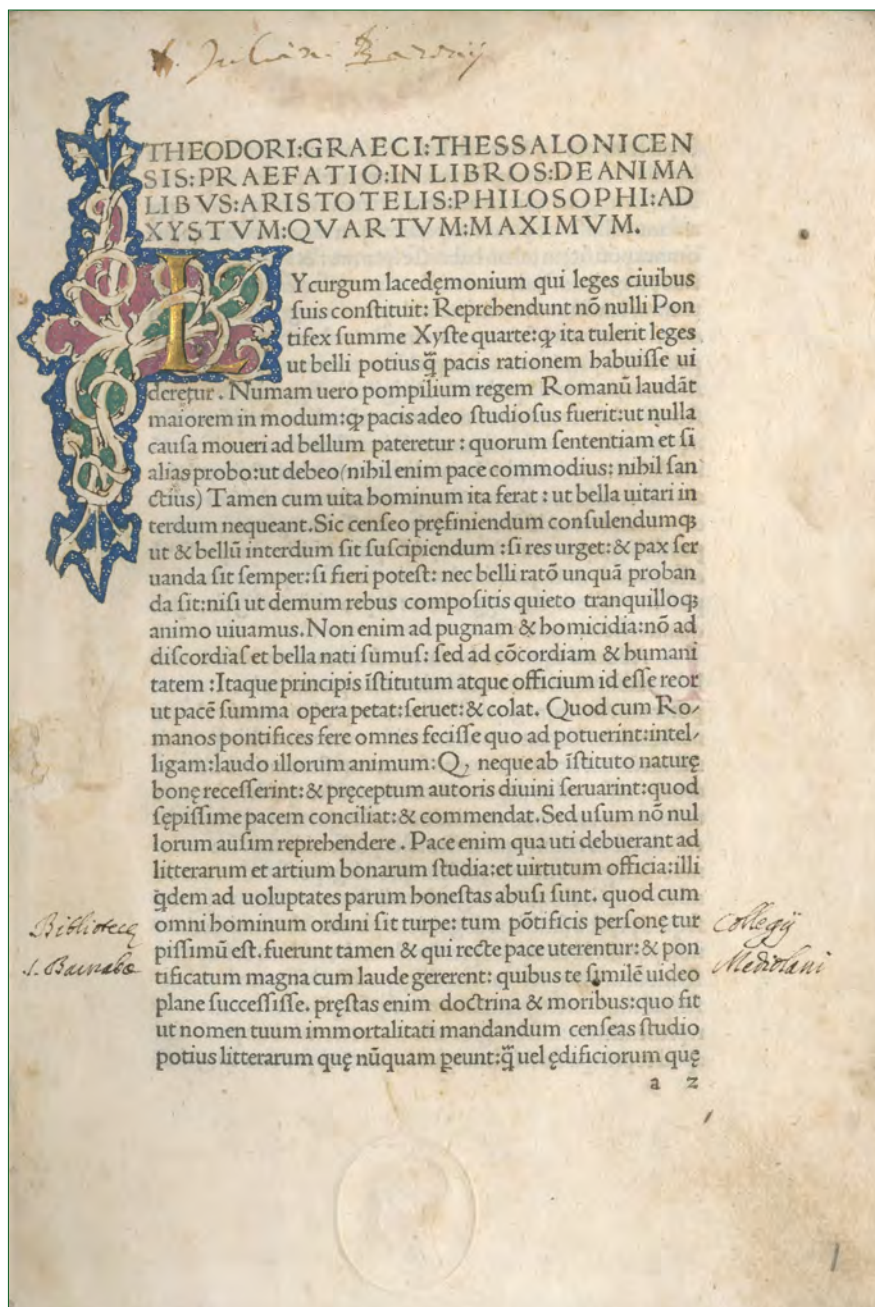 Julian. Baronij
THEODORI:GRAECI:THESSALONICEN
SIS:PRAEFATIO:IN LIBROS:DE ANIMA
LIBVS:ARISTOTELIS:PHILOSOPHI:AD
XYSTVM:QVARTVM:MAXIMVM.
LYcurgum lacedęmonium qui leges ciuibus
suis constituit: Reprehendunt nõ nulli Pon
tifex summe Xyste quarte:ꝙ ita tulerit leges
ut belli potius q̃ pacis rationem habuisse ui
deretur. Numam uero pompilium regem Romanũ laudãt
maiorem in modum:ꝙ pacis adeo studiosus fuerit:ut nulla
causa moueri ad bellum pateretur: quorum sententiam et si
alias probo:ut debeo(nihil enim pace commodius: nihil san
ctius) Tamen cum uita hominum ita ferat: ut bella uitari in
terdum nequeant.Sic censeo pręfiniendum consulendumqꝫ
ut & bellũ interdum sit suscipiendum :si res urget:& pax ser
uanda sit semper:si fieri potest: nec belli ratõ unquã proban
da sit:nisi ut demum rebus compositis quieto tranquilloqꝫ
animo uiuamus.Non enim ad pugnam & homicidia:nõ ad
discordias et bella nati sumus: sed ad cõcordiam & humani
tatem :Itaque principis ĩstitutum atque officium id esse reor
ut pacẽ summa opera petat:seruet:& colat. Quod cum Ro-
manos pontifices fere omnes fecisse quo ad potuerint:intel-
ligam:laudo illorum animum:Q, neque ab ĩstituto naturę
bonę recesserint:& pręceptum autoris diuini seruarint:quod
sępissime pacem conciliat:& commendat.Sed usum nõ nul
lorum ausim reprehendere. Pace enim qua uti debuerant ad
litterarum et artium bonarum studia:et uirtutum officia:illi
q̃dem ad uoluptates parum honestas abusi sunt. quod cum
omni hominum ordini sit turpe: tum põtificis personę tur
pissimũ est.fuerunt tamen & qui recte pace uterentur:& pon
tificatum magna cum laude gererent: quibus te similẽ uideo
plane successisse. pręstas enim doctrina & moribus:quo fit
ut nomen tuum immortalitati mandandum censeas studio
potius litterarum quę nũquam ꝑeunt:q̃ uel ędificiorum quę
a 2
Bibliotecę
S. Barnabæ
Collegij
Mediolani
1